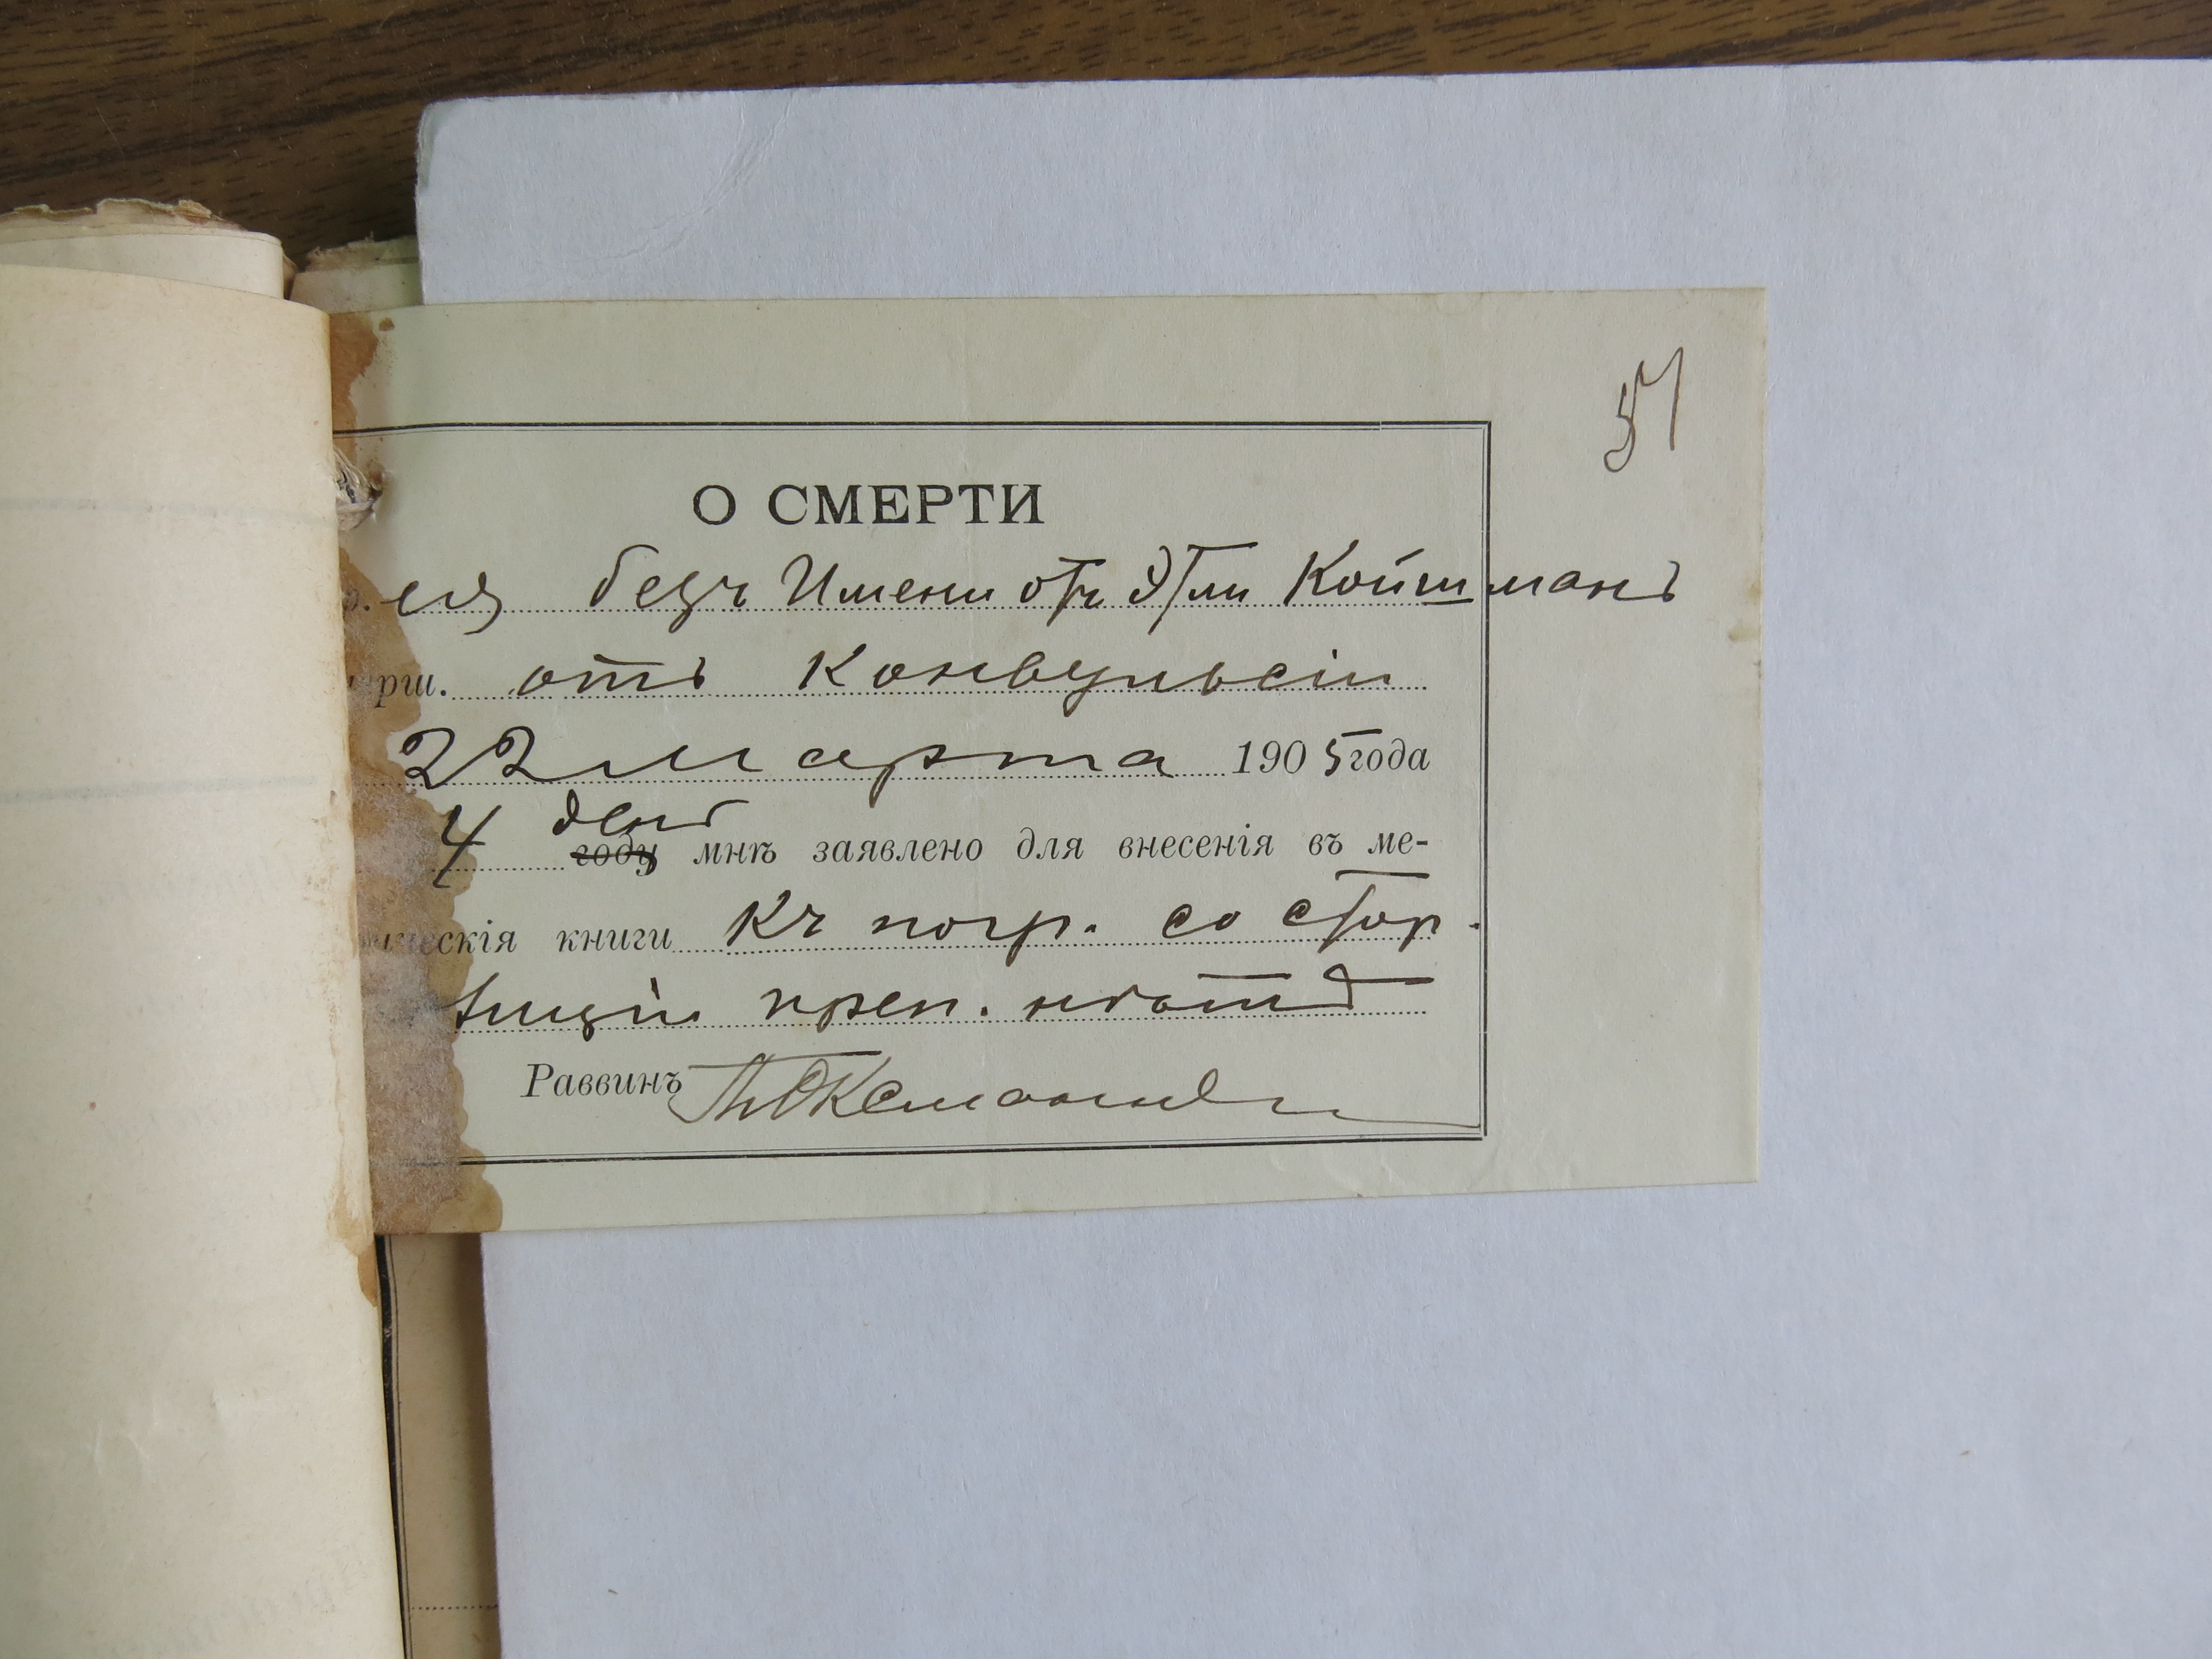 57
О СМЕРТИ
безъ Имени отъ Этли Койшманъ
рш. отъ Конвульсіи
22 марта 1905 года
4 день
году мнѣ заявлено для внесенія въ ме-
ческія книги Къ погр. со стор.
преп. нѣтъ
Раввинъ